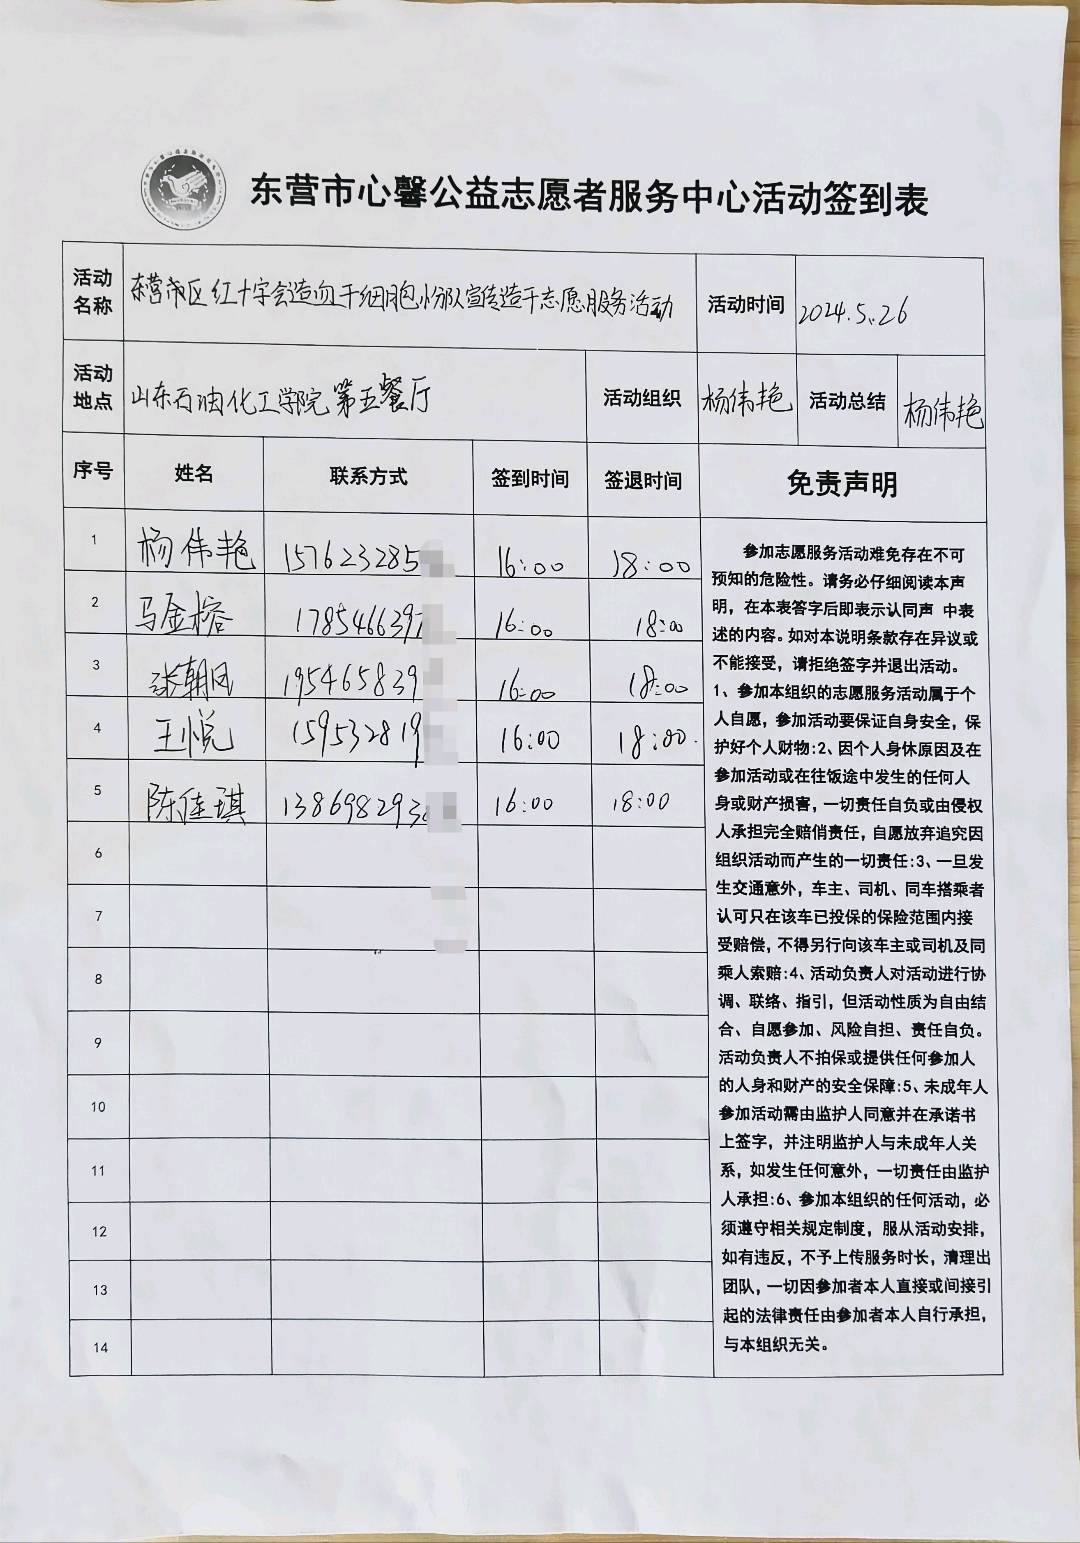 东营市心馨公益志愿者服务中心活动签到表
活动名称 东营市区红十字会造血干细胞小分队宣传造干志愿服务活动 活动时间 2024.5.26
活动地点 山东石油化工学院第五餐厅 活动组织 杨伟艳 活动总结 杨伟艳
序号 姓名 联系方式 签到时间 签退时间 免责声明
1 杨伟艳 157623285 16:00 18:00
2 马金榕 178546639 16:00 18:00
3 张朝凤 195465839 16:00 18:00
4 王悦 159532819 16:00 18:00.
5 陈佳琪 138698293 16:00 18:00
6
7
8
9
10
11
12
13
14
参加志愿服务活动难免存在不可
预知的危险性。请务必仔细阅读本声
明，在本表答字后即表示认同声 中表
述的内容。如对本说明条款存在异议或
不能接受，请拒绝签字并退出活动。
1、参加本组织的志愿服务活动属于个
人自愿，参加活动要保证自身安全，保
护好个人财物:2、因个人身休原因及在
参加活动或在往饭途中发生的任何人
身或财产损害，一切责任自负或由侵权
人承担完全赔俏责任，自愿放弃追究因
组织活动而产生的一切责任:3、一旦发
生交通意外，车主、司机、同车搭乘者
认可只在该车已投保的保险范围内接
受赔偿，不得另行向该车主或司机及同
乘人索赔:4、活动负责人对活动进行协
调、联络、指引，但活动性质为自由结
合、自愿参加、风险自担、责任自负。
活动负责人不拍保或提供任何参加人
的人身和财产的安全保障:5、未成年人
参加活动需由监护人同意并在承诺书
上签字，并注明监护人与未成年人关
系，如发生任何意外，一切责任由监护
人承担:6、参加本组织的任何活动，必
须遵守相关规定制度，服从活动安排，
如有违反，不予上传服务时长，清理出
团队，一切因参加者本人直接或间接引
起的法律责任由参加者本人自行承担，
与本组织无关。